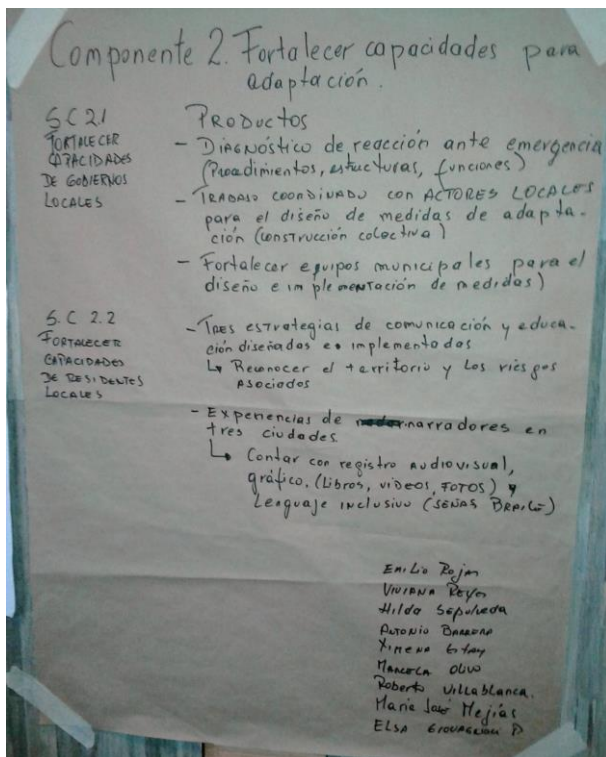 Componente 2. Fortalecer capacidades para
adaptación.
S.C 2.1
FORTALECER
CAPACIDADES
DE GOBIERNOS
LOCALES
PRODUCTOS
- DIAGNÓSTICO de reacción ante emergencia
(Procedimientos, estructuras, funciones)
- TRABAJO COORDINADO con ACTORES LOCALES
para el diseño de medidas de adapta-
ción (construcción colectiva)
- Fortalecer equipos municipales para el
diseño e implementación de medidas)
S.C 2.2
FORTALECER
CAPACIDADES
DE RESIDENTES
LOCALES
- TRES estrategias de comunicación y educa-
ción diseñadas e implementadas
↳ Reconocer el territorio y los riesgos
ASOCIADOS
- Experiencias de narradores en
tres ciudades
↳ Contar con registro AUDIOVISUAL,
gráfico, (Libros, VIDEOS, FOTOS) y
Lenguaje inclusivo (SEÑAS BRAILE)
Emilio Rojas
VIVIANA Reyes
Hilda Sepulveda
ANTONIO BARRERA
XIMENA
MARCELA OLIVO
Roberto Villablanca.
María José Mejías
ELSA